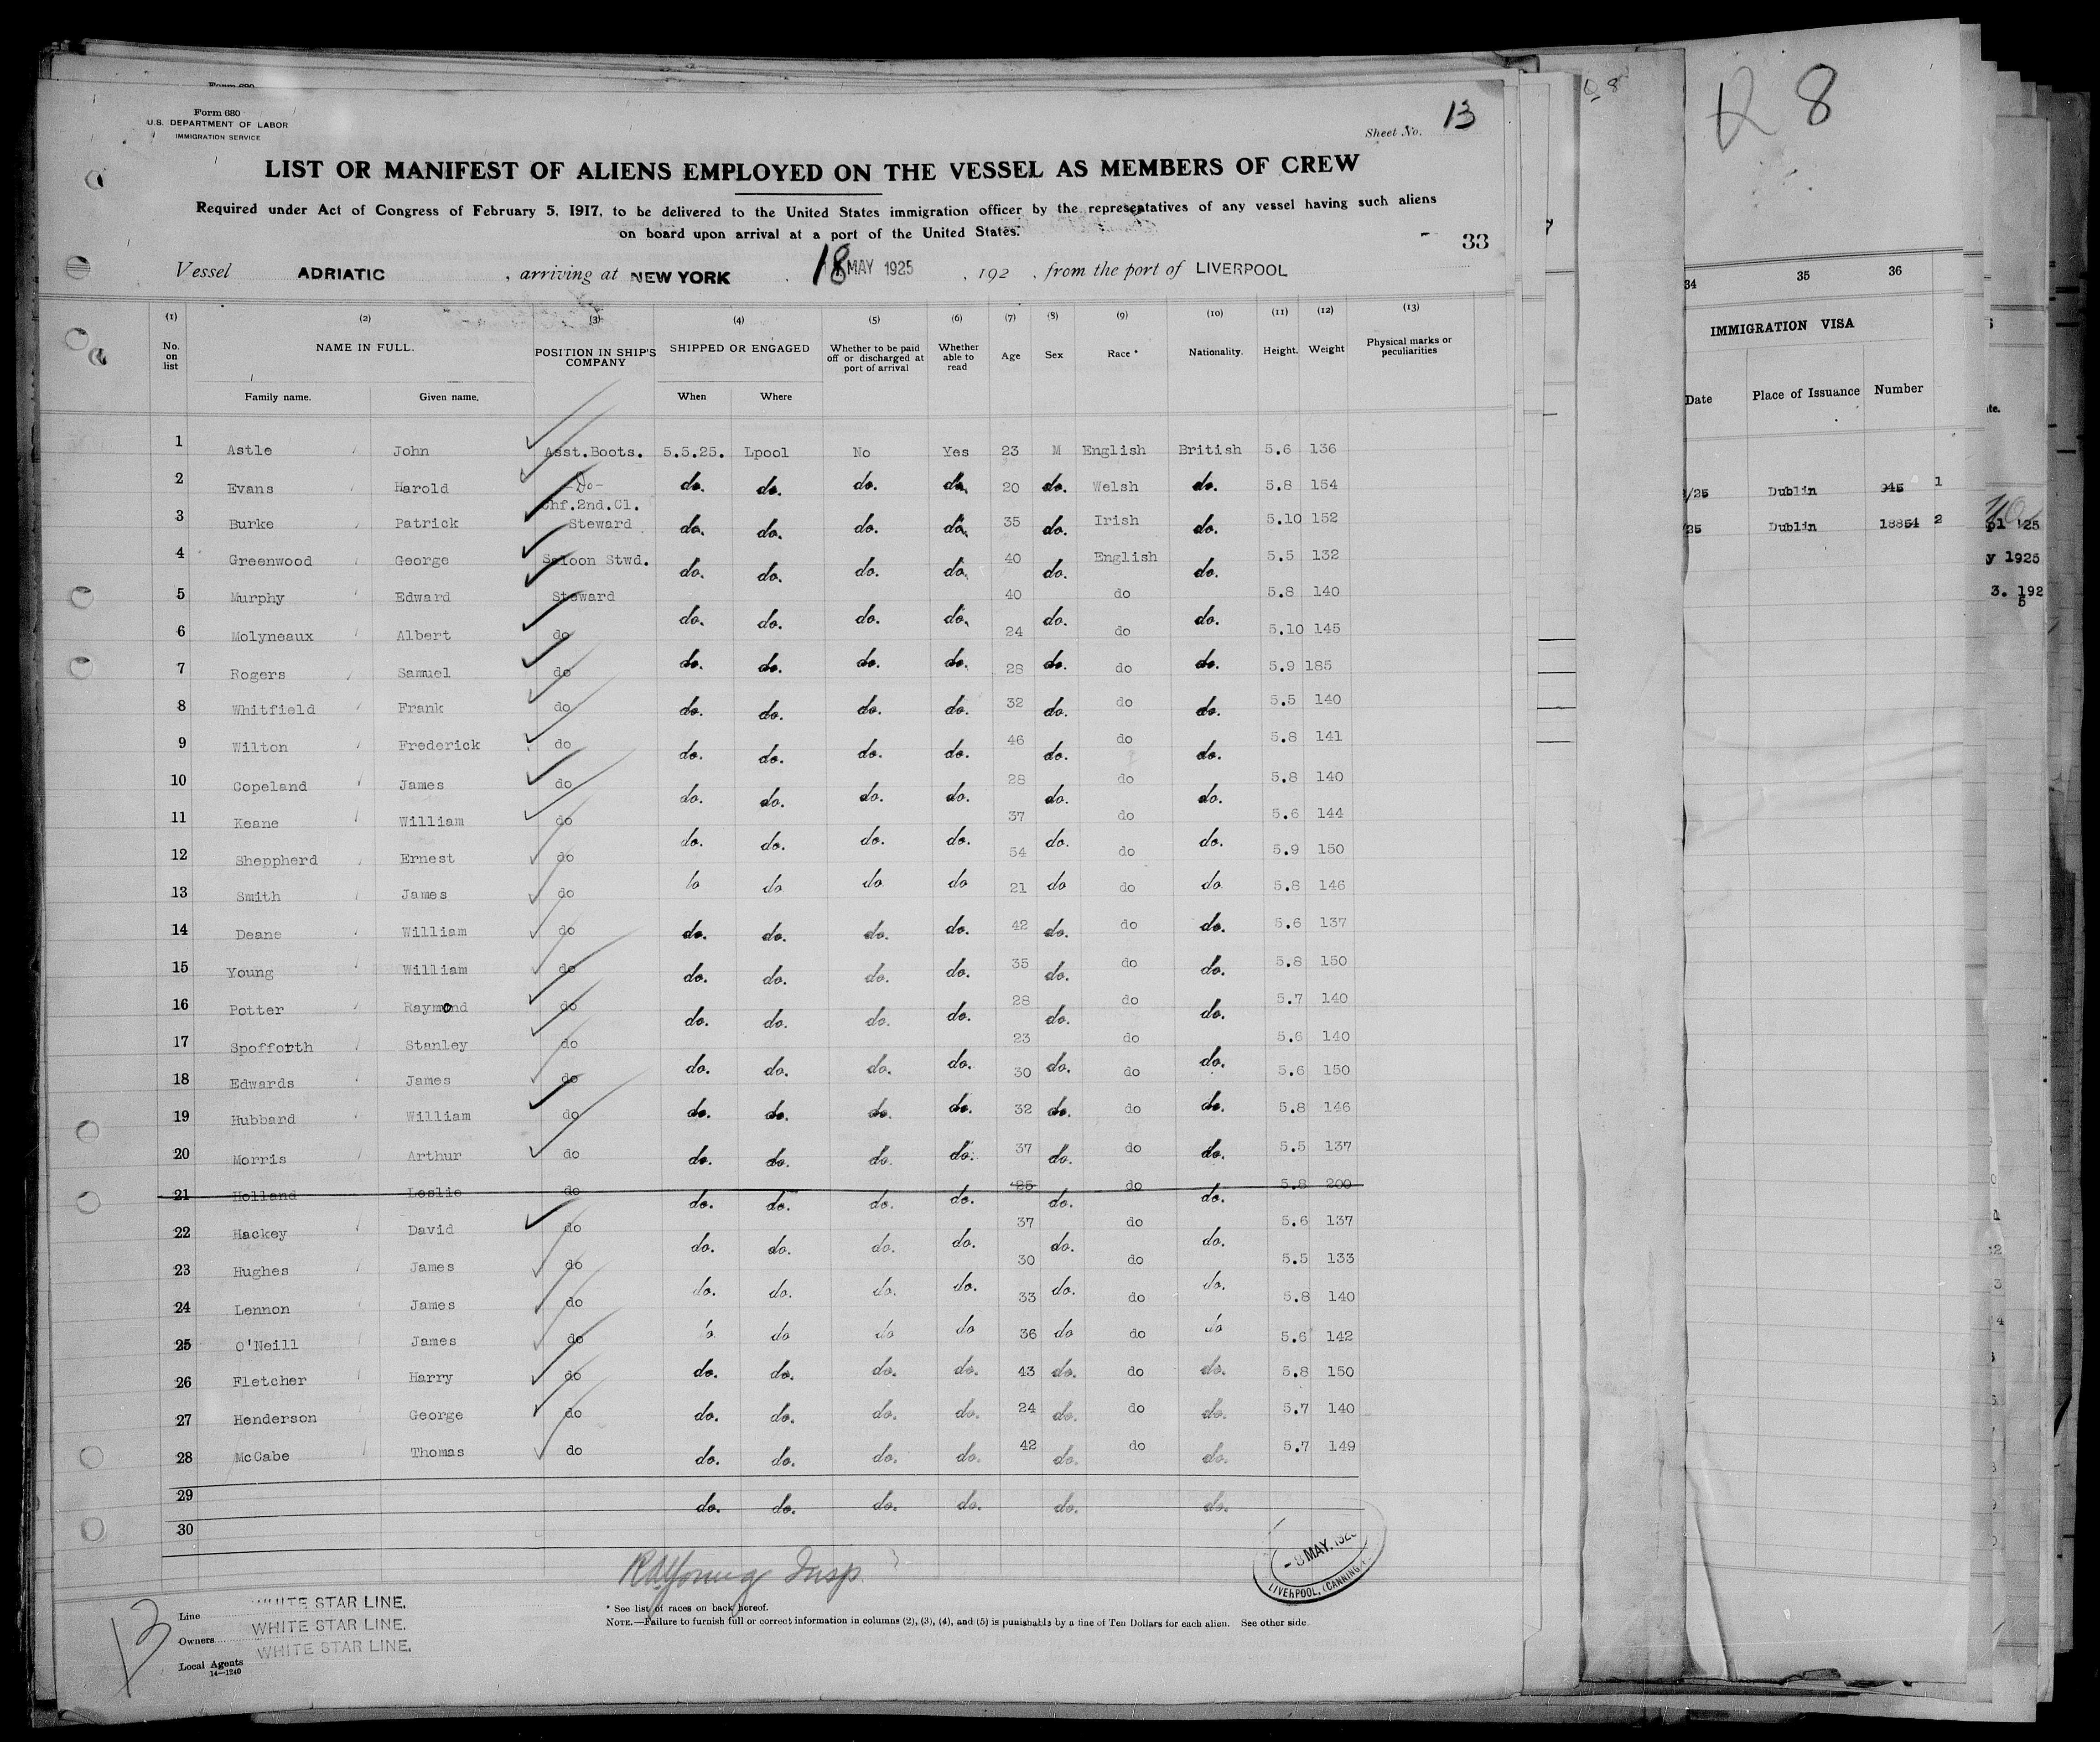 Form 680
U.S. DEPARTMENT OF LABOR
IMMIGRATION SERVICE
Sheet No. 13
LIST OR MANIFEST OF ALIENS EMPLOYED ON THE VESSEL AS MEMBERS OF CREW
Required under Act of Congress of February 5, 1917, to be delivered to the United States immigration officer by the representatives of any vessel having such aliens
on board upon arrival at a port of the United States.
33
Vessel ADRIATIC, arriving at NEW YORK 18 MAY 1925, 192 , from the port of LIVERPOOL
(1) (2) (3) (4) (5) (6) (7) (8) (9) (10) (11) (12) (13)
No. on list NAME IN FULL. POSITION IN SHIP'S COMPANY SHIPPED OR ENGAGED Whether to be paid off or discharged at port of arrival Whether able to read Age Sex Race * Nationality. Height. Weight Physical marks or peculiarities
Family name. Given name. When Where
1 Astle John Asst.Boots. 5.5.25. Lpool No Yes 23 M English British 5.6 136
2 Evans Harold -Do- do. do. do. do. 20 do. Welsh do. 5.8 154
3 Burke Patrick Chf.2nd.Cl. Steward do. do. do. do. 35 do. Irish do. 5.10 152
4 Greenwood George Saloon Stwd. do. do. do. do. 40 do. English do. 5.5 132
5 Murphy Edward Steward do. do. do. do. 40 do. do do. 5.8 140
6 Molyneaux Albert do do. do. do. do. 24 do. do do. 5.10 145
7 Rogers Samuel do do. do. do. do. 28 do. do do. 5.9 185
8 Whitfield Frank do do. do. do. do. 32 do. do do. 5.5 140
9 Wilton Frederick do do. do. do. do. 46 do. do do. 5.8 141
10 Copeland James do do. do. do. do. 28 do. do do. 5.8 140
11 Keane William do do. do. do. do. 37 do. do do. 5.6 144
12 Sheppherd Ernest do do do do do 54 do do do 5.9 150
13 Smith James do do. do. do. do. 21 do. do do. 5.8 146
14 Deane William do do. do. do. do. 42 do. do do. 5.6 137
15 Young William do do. do. do. do. 35 do. do do. 5.8 150
16 Potter Raymond do do. do. do. do. 28 do. do do. 5.7 140
17 Spofforth Stanley do do. do. do. do. 23 do. do do. 5.6 140
18 Edwards James do do. do. do. do. 30 do. do do. 5.6 150
19 Hubbard William do do. do. do. do. 32 do. do do. 5.8 146
20 Morris Arthur do do. do. do. do. 37 do. do do. 5.5 137
21 Holland Leslie do do. do. do. do. 25 do. do do. 5.8 200
22 Hackey David do do. do. do. do. 37 do. do do. 5.6 137
23 Hughes James do do. do. do. do. 30 do. do do. 5.5 133
24 Lennon James do do. do. do. do. 33 do. do do. 5.8 140
25 O'Neill James do do do do do 36 do do do 5.6 142
26 Fletcher Harry do do. do. do. do. 43 do. do do. 5.8 150
27 Henderson George do do. do. do. do. 24 do. do do. 5.7 140
28 McCabe Thomas do do. do. do. do. 42 do. do do. 5.7 149
29 do. do. do. do. do. do.
30
Young Insp
MAY. 192
LIVERPOOL, (CANNING
* See list of races on back hereof.
NOTE.—Failure to furnish full or correct information in columns (2), (3), (4), and (5) is punishable by a fine of Ten Dollars for each alien. See other side.
13
Line WHITE STAR LINE.
Owners WHITE STAR LINE.
Local Agents WHITE STAR LINE.
14—1240
R 8
34 35 36
IMMIGRATION VISA
Date Place of Issuance Number
/25 Dublin 945 1
/25 Dublin 18854 2
25
y 1925
3. 192
5